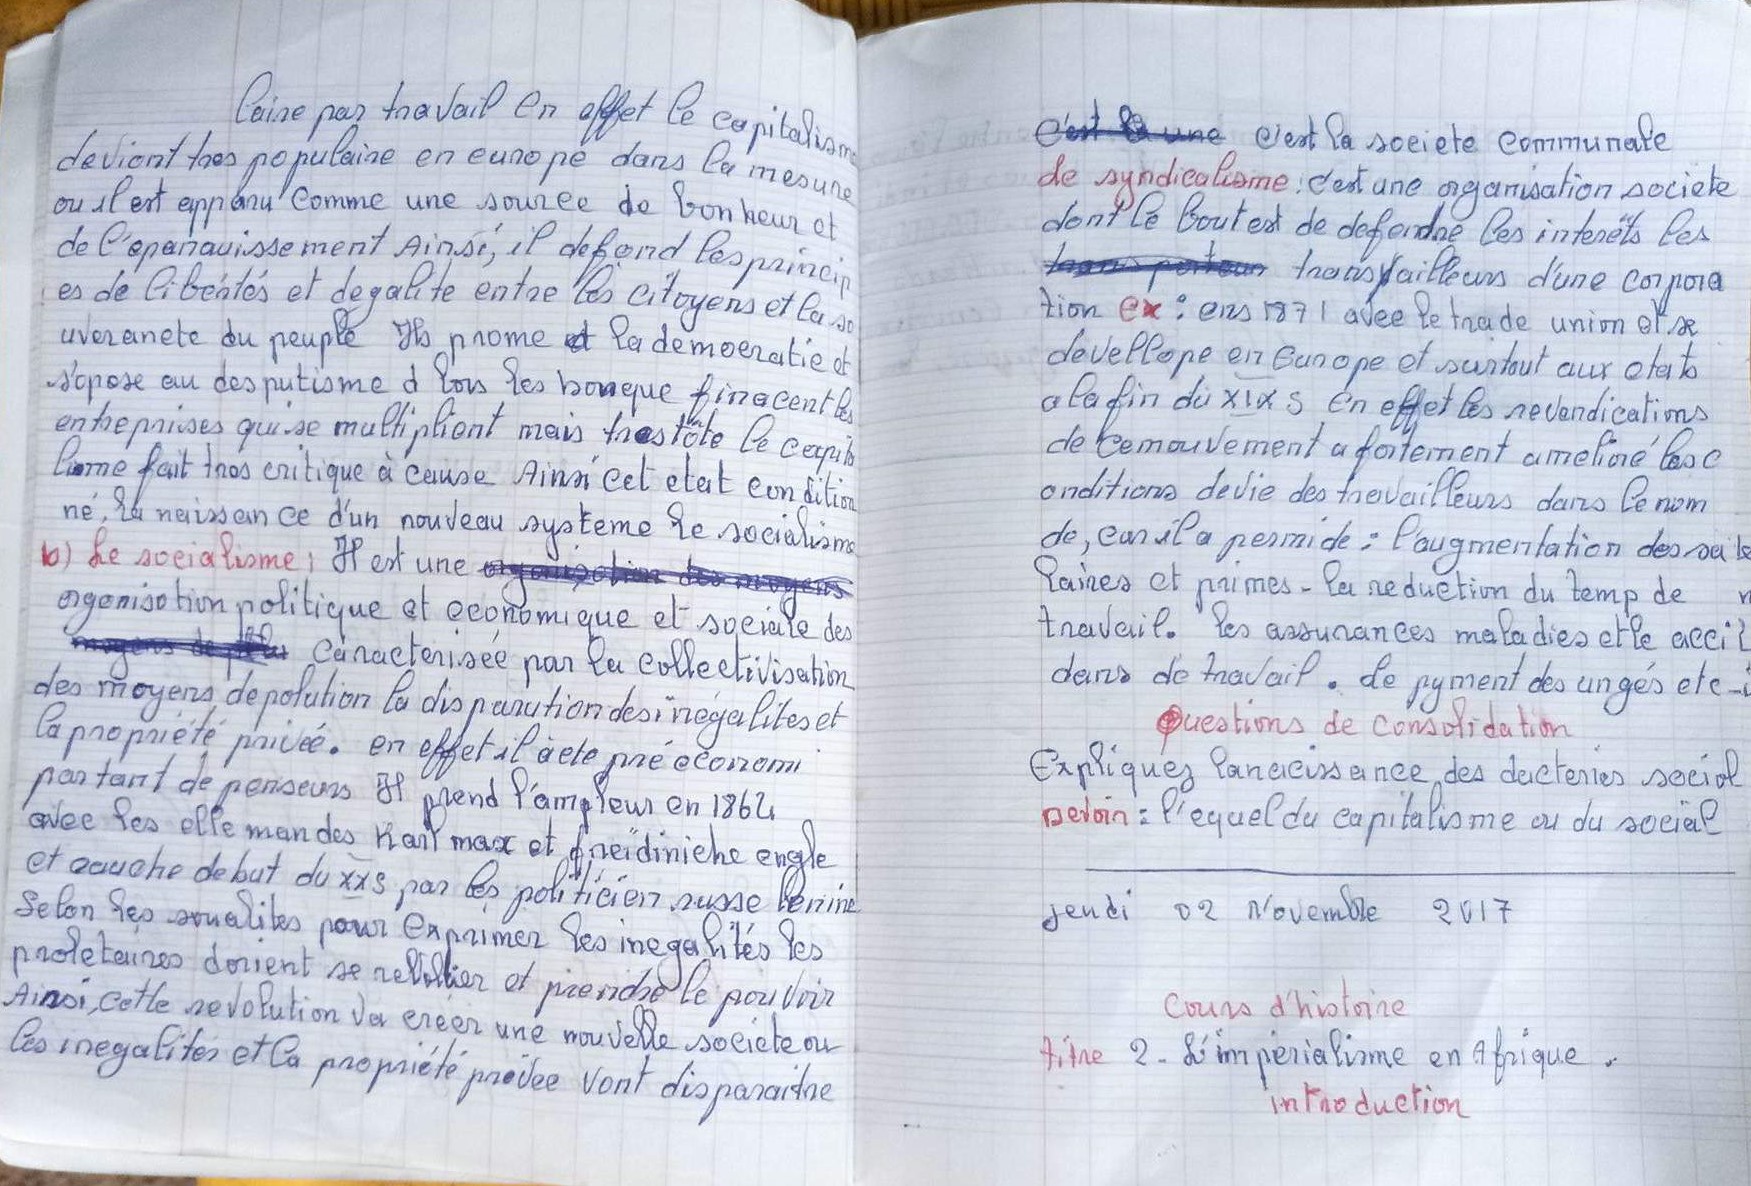 laire par travail en effet le capitalisme
devient tres populaire en europe dans la mesure
ou il est apparu comme une source de bonheur et
de l'epanauissement Ainsi, il defend les princip
es de libertés et degalite entre les citoyens et la so
uveranete du peuple Ils prome et la democratie et
s'opose au desputisme d lors les banque finacent les
entreprises qui se multiplient mais tres tôte le capita
lisme fait tres critique à cause Ainsi cet etat condition
né, la naissance d'un nouveau systeme le socialisme
b) Le socialisme; Il est une organisation des moyens
organisation politique et economique et sociale des
moyens de caracterisée par la collectivisation
des moyens de polution la disparution des inegalites et
la propriété privée. en effet il à ete pré économi
partant de penseurs Il prend l'ampleur en 1864
avec les elle mandes Karl max et freidiniche engle
et cauche debut du XXs par les politicien russe lenine
Selon les pour exprimer les inegalités les
proletaires dorient se revolter et prendre le pouvoir
Ainsi, cette revolution va creer une nouvelle societe ou
les inegalites et la propriété privee vont disparaitre
c'est la une c'est la societe communale
de syndicalisme: c'est une organisation societe
dont le bout est de defendre les interêts les
transporteur transvailleurs d'une corpora
tion ex: ens 1871 avec le trade union et se
develope en Europe et surtout aux etats
a la fin du XIX s En effet les revendications
de ce mouvement a fortement amelioré les c
onditions devie des travailleurs dans le nom
de, car il a permide: l'augmentation des sa
laires et primes - la reduction du temp de
travail. les assurances maladies et le acci
dans de travail. de pyment des ungés etc-
Questions de consolidation
Expliquez lanaissance des dacteries social
Devoin: l'equel du capitalisme ou du social
jeudi 02 Novembre 2017
Cours d'histoire
titre 2- L'imperialisme en Afrique.
introduction